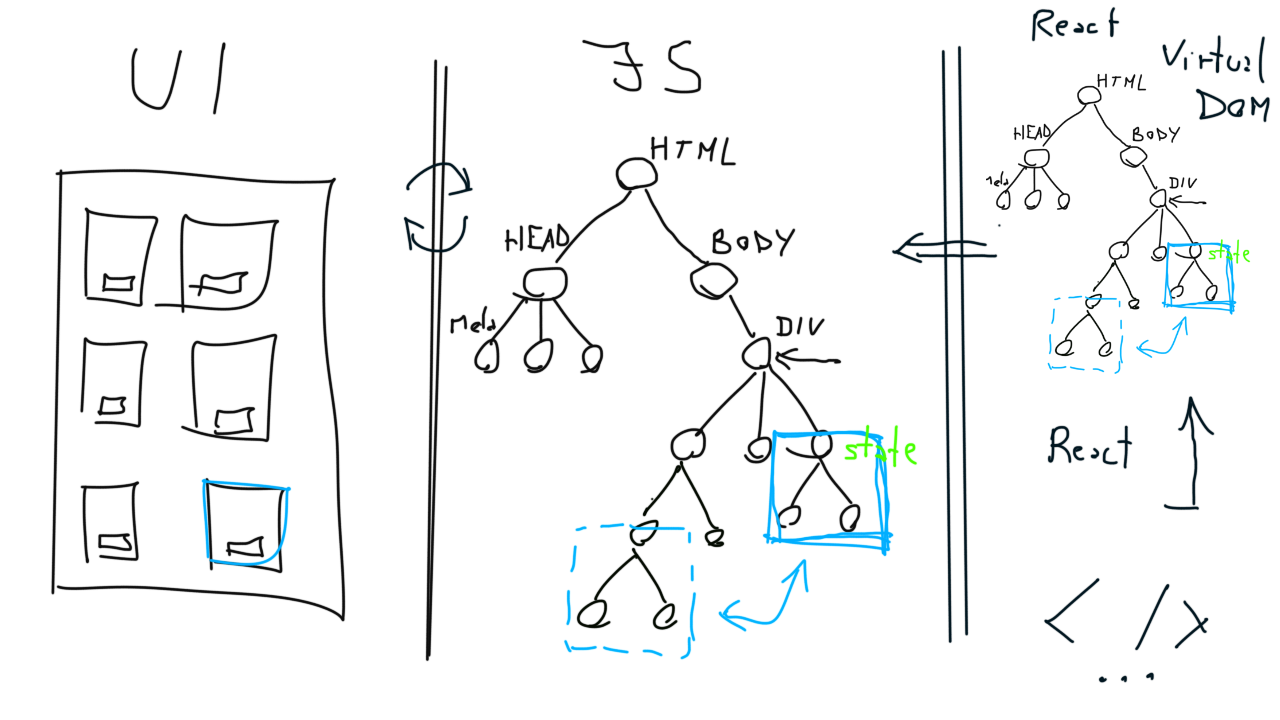 UI
JS
HTML
HEAD
BODY
Meta
DIV
state
React
Virtual
DOM
HTML
HEAD
BODY
Meta
DIV
state
React
< />
...